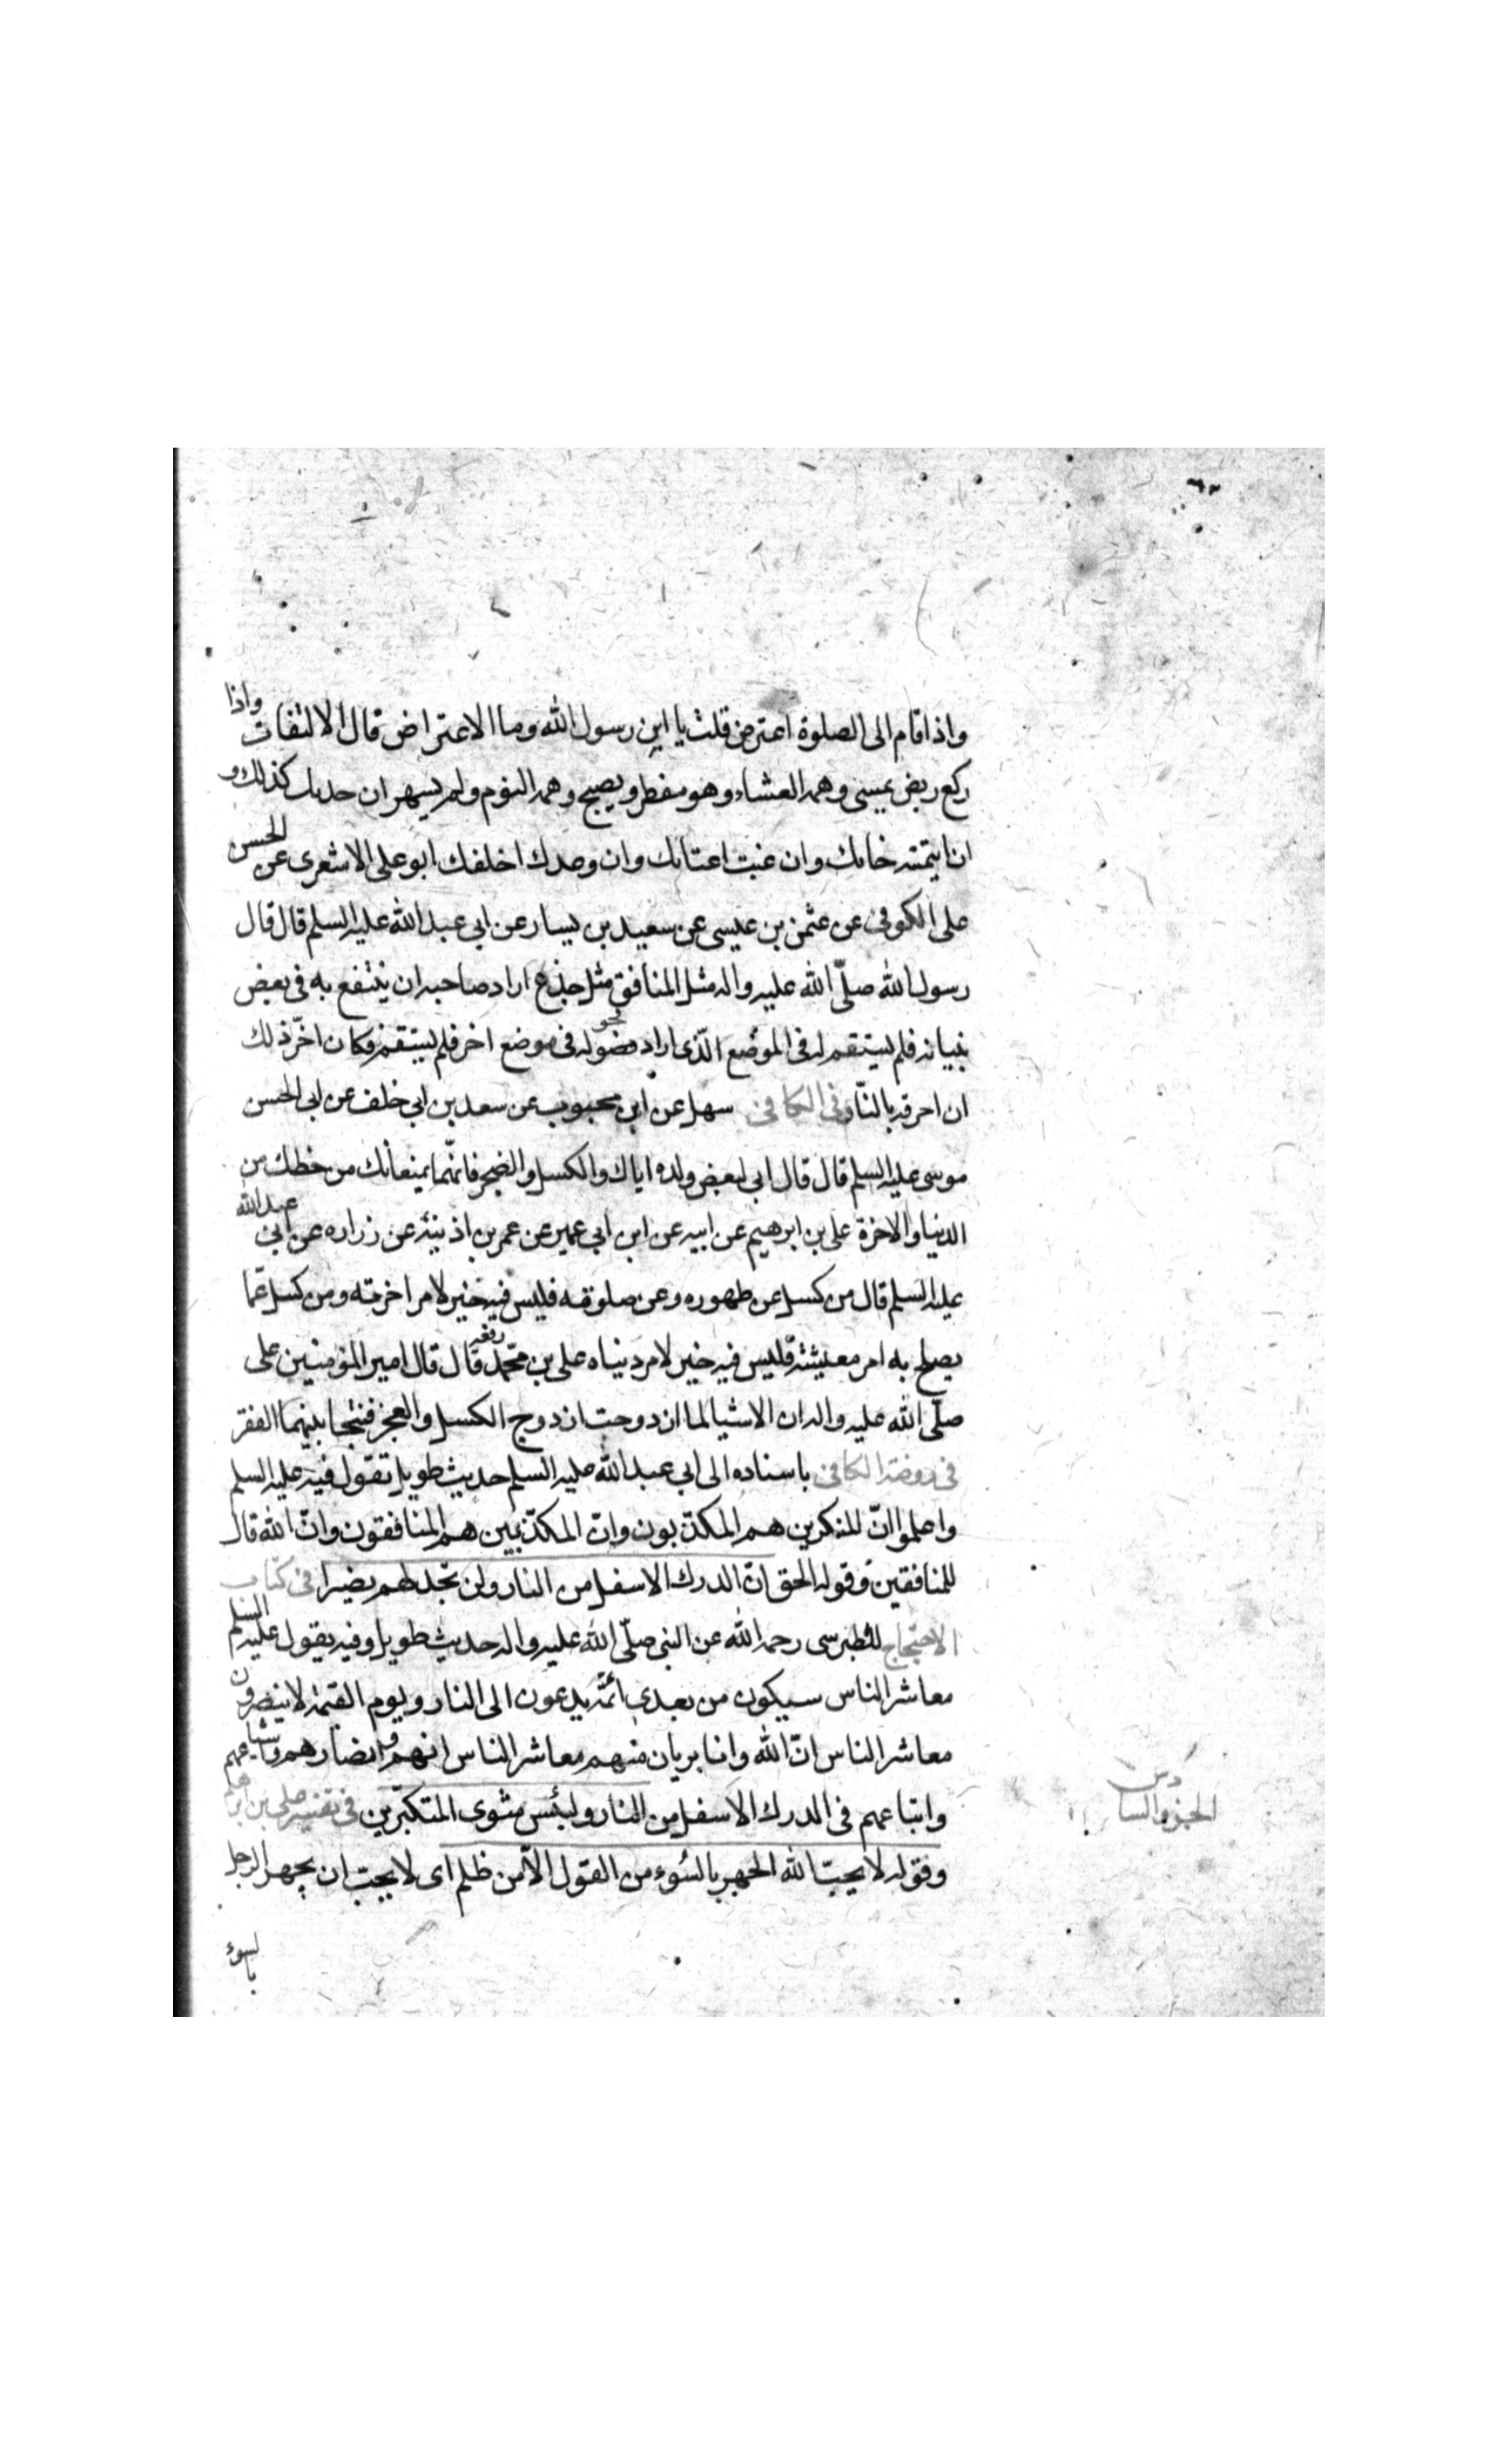 واذا قام الى الصلوة اعترض قلت يا ابن رسول الله وما الاعتراض قال الالتفات واذا
ركع ربض يمسى وهمه العشاء وهو مفطر ويصبح وهمه النوم ولم يسهر ان حدثك كذبك و
ان ايتمنته خانك وان غبت اغتابك وان وعدك اخلفك ابو على الاشعرى عن الحسن
على الكوفى عن عثمن بن عيسى عن سعيد بن يسار عن ابى عبد الله عليه السلم قال قال
رسول الله صلّى الله عليه واله مثل المنافق مثل جذع اراد صاحبه ان ينتفع به فى بعض
بنيانه فلم يستقم له فى الموضع الّذى اراد فحوله فى موضع اخر فلم يستقم فكان اخر ذلك
ان احرقه بالنّار فى الكافى سهل عن ابن محبوب عن سعد بن ابى خلف عن ابى الحسن
موسى عليه السلم قال قال ابى لبعض ولده اياك والكسل والضجر فانّهما يمنعانك من حظك من
الدنيا والاخرة على بن ابرهيم عن ابيه عن ابن ابى عمير عن عمر بن اذينة عن زراره عن ابى عبد الله
عليه السلم قال من كسل عن طهوره وعن صلوته فليس فيه خير لامر اخرته ومن كسل عمّا
يصلح به امر معيشته فليس فيه خير لامر دنياه على بن محمّد رفعه قال قال امير المؤمنين على
صلّى الله عليه واله ان الاشيا لما ازدوجت ازدوج الكسل والعجز فنتجا بينهما الفقر
فى روضة الكافى باسناده الى ابى عبد الله عليه السلم حديث طويل تقول فيه عليه السلم
واعلموا انّ المنكرين هم المكذّبون وانّ المكذّبين هم المنافقون وانّ الله قال
للمنافقين وقوله الحق انّ الدرك الاسفل من النار ولن تجد لهم نصيرا فى كتاب
الاحتجاج للطبرسى رحمه الله عن النبى صلّى الله عليه واله حديث طويل وفيه يقول عليه السلم
معاشر الناس سيكون من بعدى ائمّة يدعون الى النار ويوم القيمة لا ينصرون
معاشر الناس انّ الله وانا بريان منهم معاشر الناس انهم وانصارهم واشياعهم
واتباعهم فى الدرك الاسفل من النار ولبئس مثوى المتكبّرين فى تفسير على بن ابرهيم
وقوله لا يحبّ الله الجهر بالسّوء من القول الّا من ظلم اى لا يحب ان يجهر الرجل
بالسوء
الجزو السادس